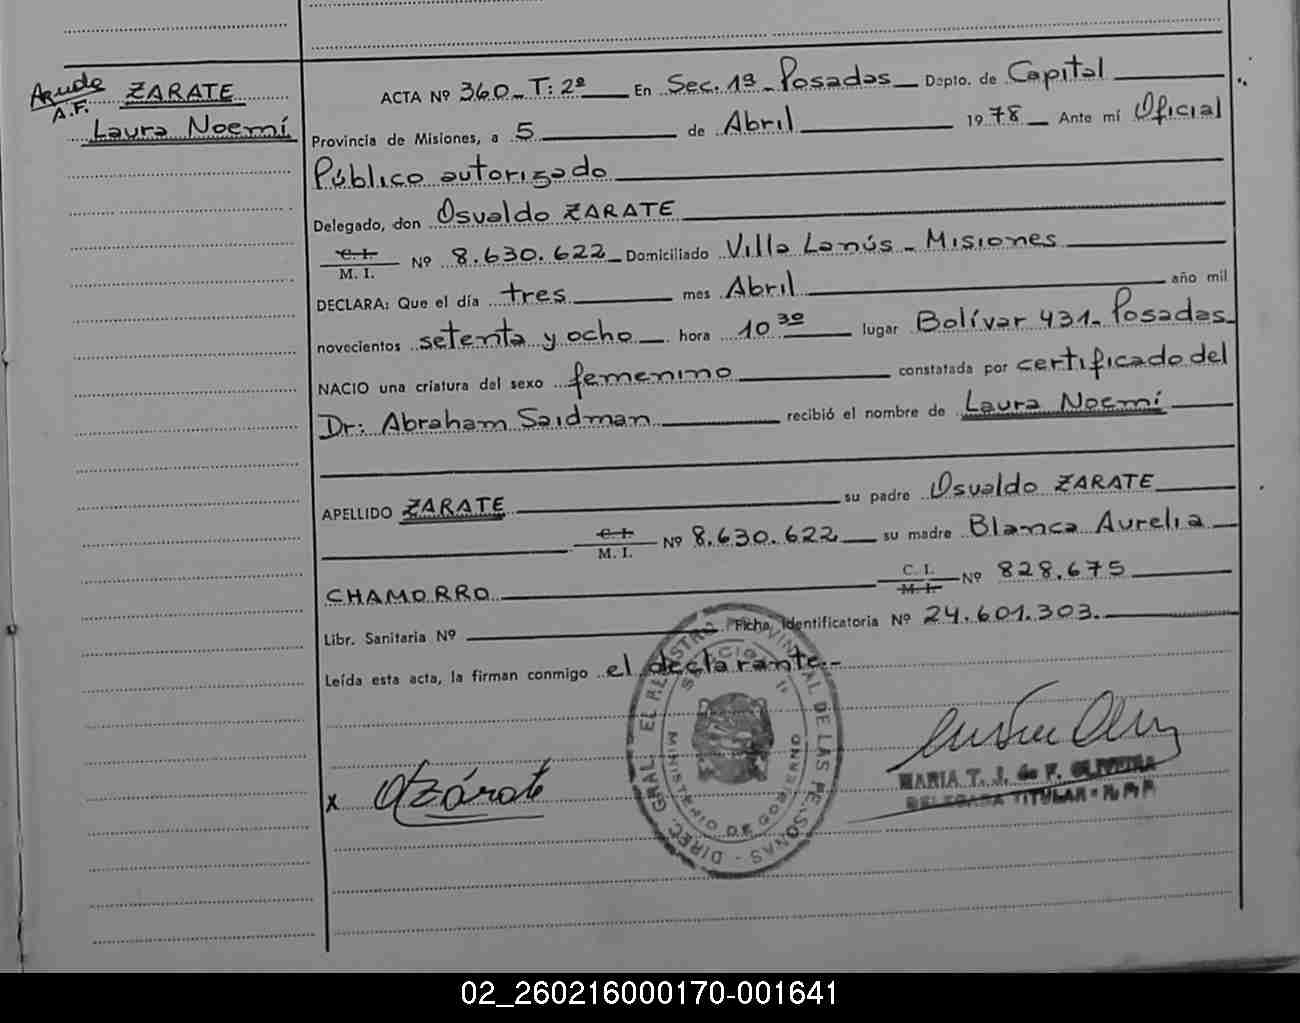 Ayuda
A.F.
ZARATE
Laura Noemí
ACTA Nº 360_ T: 2º En Sec. 1ª_ Posadas Dpto. de Capital
Provincia de Misiones, a 5 de Abril 1978 Ante mí Oficial
Público autorizado
Delegado, don Osvaldo ZARATE
C. I. / M. I. Nº 8.630.622_ Domiciliado Villa Lanús_ Misiones
DECLARA: Que el día tres mes Abril año mil
novecientos setenta y ocho hora 10 30 lugar Bolívar 431_ Posadas_
NACIO una criatura del sexo femenino constatada por certificado del
Dr: Abraham Saidman recibió el nombre de Laura Noemí
APELLIDO ZARATE su padre Osvaldo ZARATE
C. I. / M. I. Nº 8.630.622 su madre Blanca Aurelia
CHAMORRO C. I. / M. I. Nº 828.675
Libr. Sanitaria Nº Ficha Identificatoria Nº 24.601.303.
Leída esta acta, la firman conmigo el declarante._
DIREC. GRAL. EL REGISTRO PROVINCIAL DE LAS PERSONAS
SECCION 1ª
MINISTERIO DE GOBIERNO
x OZárate
MARIA T. J. de F. OLIVEIRA
DELEGADA TITULAR - R P P
02_260216000170-001641